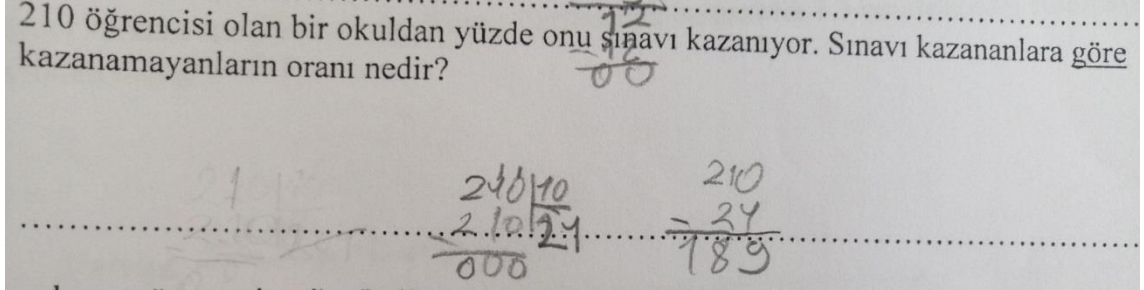 12
210 öğrencisi olan bir okuldan yüzde onu sınavı kazanıyor. Sınavı kazananlara göre
kazanamayanların oranı nedir?
00
210 10 210
- 210 21 - 21
000 189